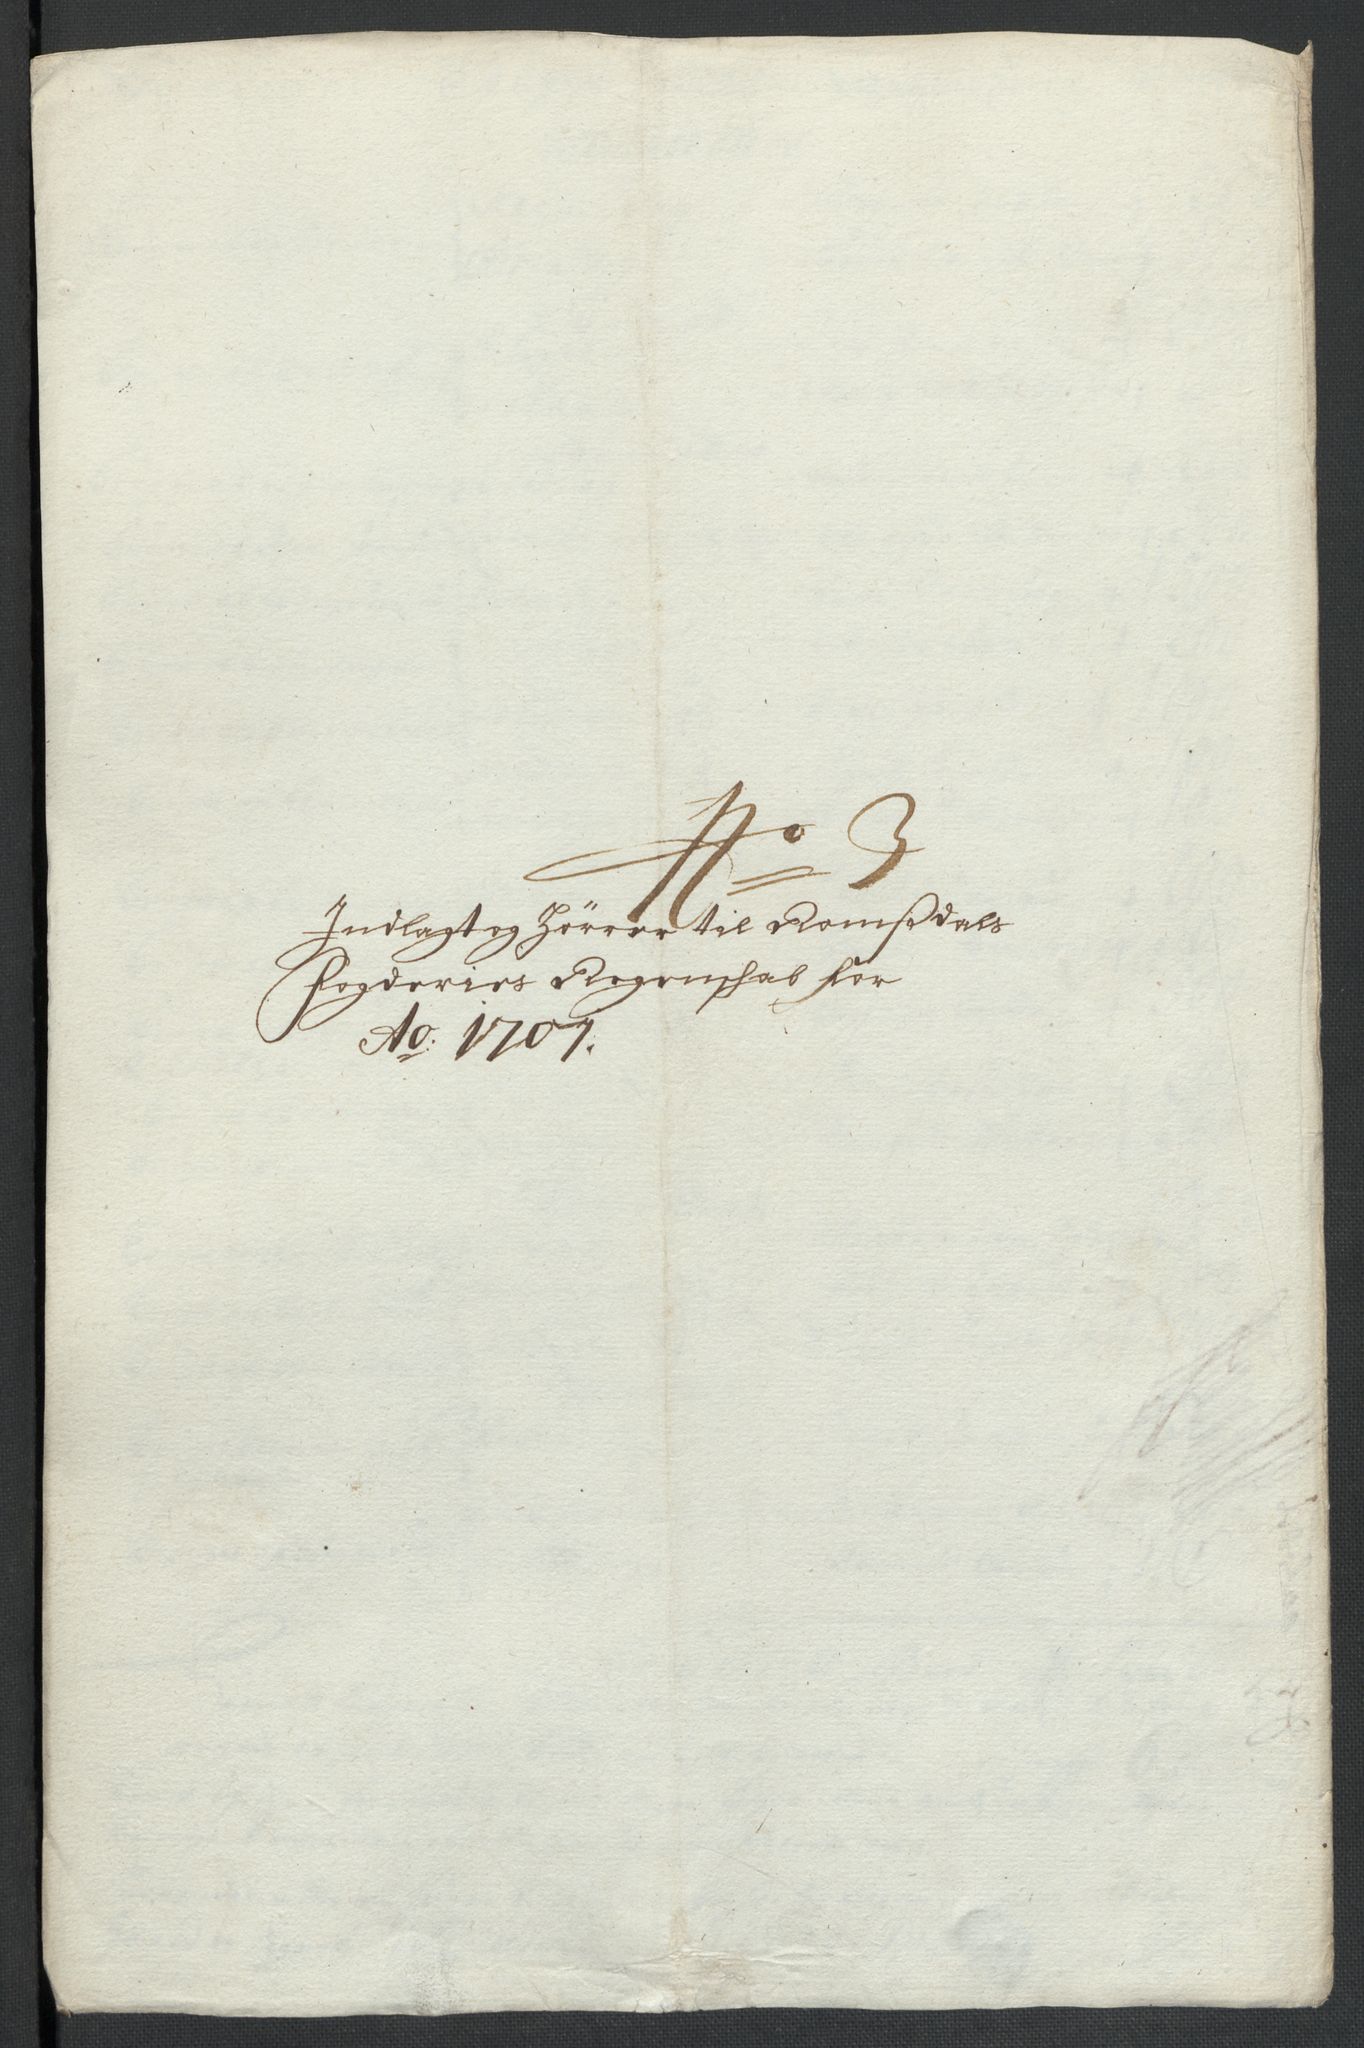 No 3
Indlagt og hörrer til Romßdals
Fogderies Regenschab for
Ao: 1707.